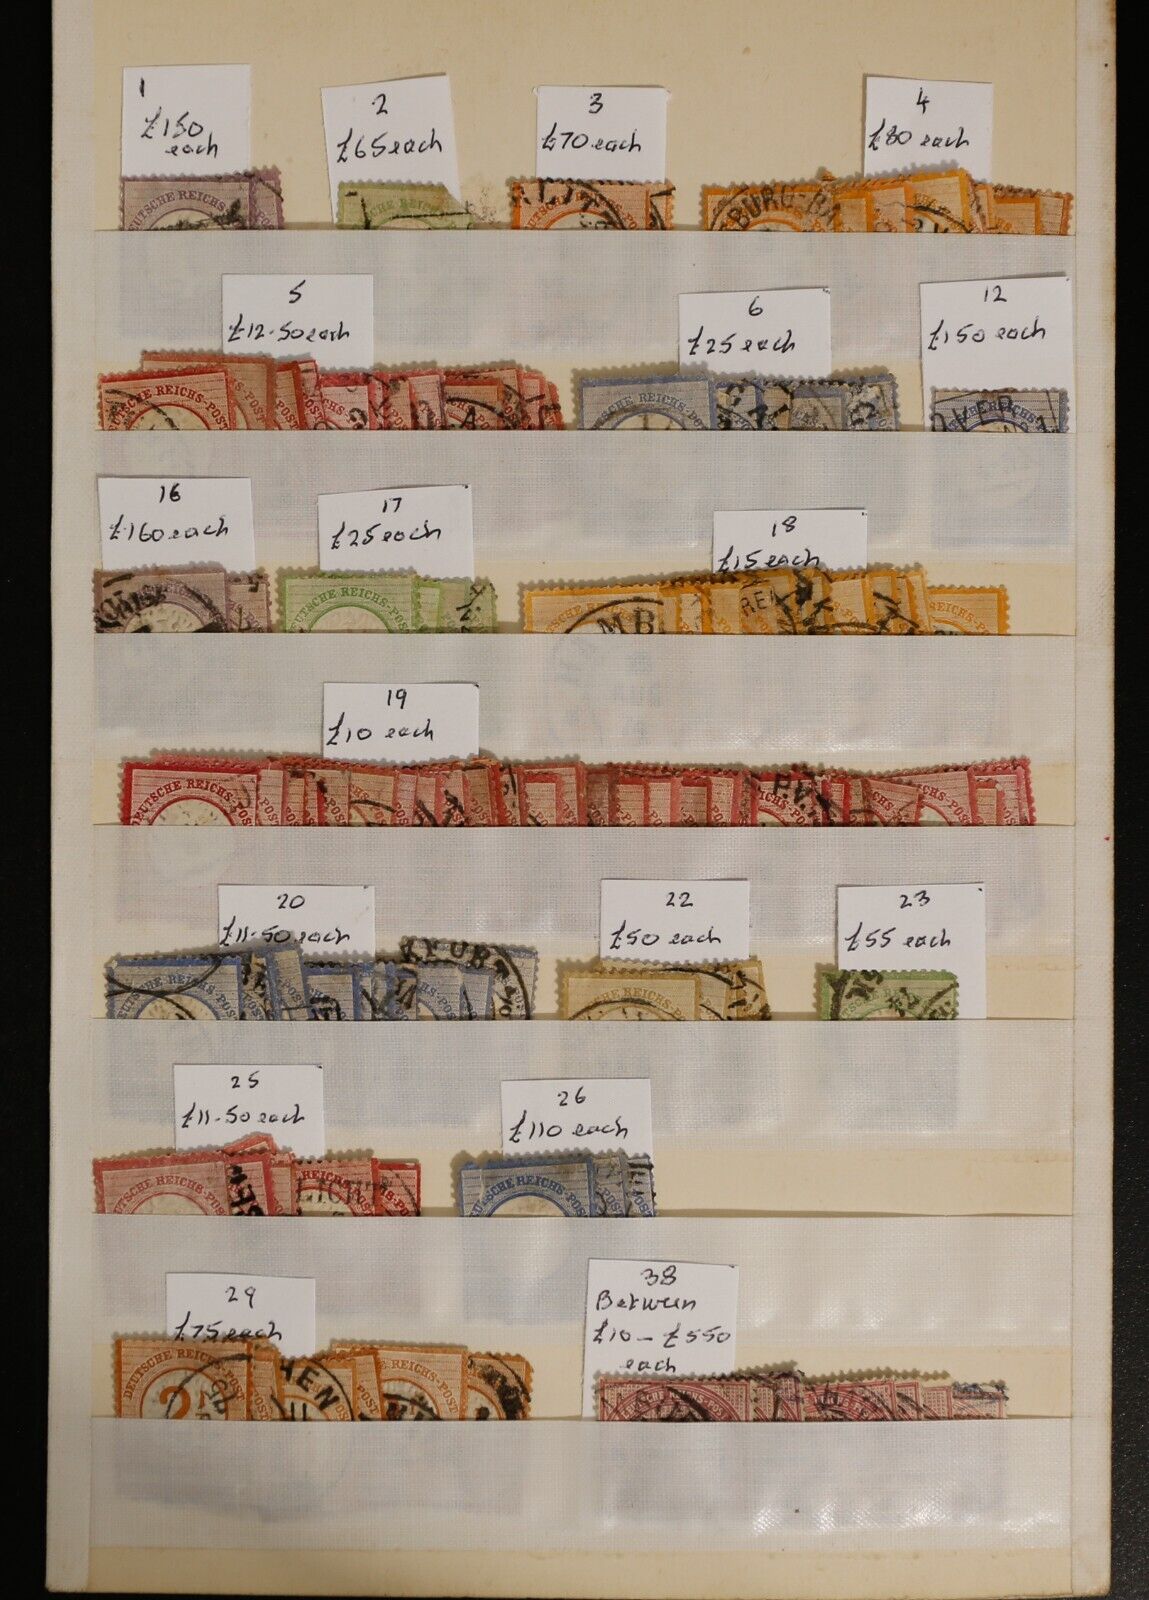 1
£150
each
2
£65 each
3
£70 each
4
£80 each
DEUTSCHE REICHS
BURG-BA
5
£12-50 each
6
£25 each
12
£150 each
DEUTSCHE REICHS-POST
REICHS-POST
16
£160 each
17
£25 each
18
£15 each
DEUTSCHE REICHS-POST
REICHS-POST
19
£10 each
DEUTSCHE REICHS-POST
P.V.
20
£11-50 each
22
£50 each
23
£55 each
DEUTSCHE REICHS-POST
REICHS-POST
25
£11-50 each
26
£110 each
DEUTSCHE REICHS-POST
DEUTSCHE REICHS-POST
29
£75 each
38
Between
£10 - £550
each
DEUTSCHE REICHS-POST
HEN
REICHS-POST